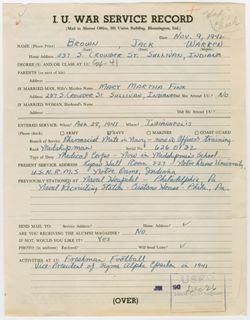 I. U. WAR SERVICE RECORD
(Mail to Alumni Office, 301 Union Building, Bloomington, Ind.)
DATE Nov. 9, 1942
NAME (Please Print) Brown Jack Warren
HOME ADDRESS 237 S. Crowder St. Sullivan, Indiana
DEGREE (S) AND/OR CLASS AT I.U.
PARENTS (or next of kin)
Address
IF MARRIED MAN, Wife's Maiden Name Mary Martha Fink
Address 237 S. Crowder St. Sullivan, Indiana Did She Attend I.U? No
IF MARRIED WOMAN, Husband's Name
Address Did He Attend I.U?
ENTERED SERVICE: When Indianapolis
(Please Check) ARMY NAVY MARINE COAST GUARD
Branch Pharmacist Mate in Navy - now in Officers Training
Rank Midshipman Serial No.
Type of Work Medical Corps - Now in Midshipmen's School
PRESENT SERVICE ADDRESS Lyons Hall Room 327 Notre Dame University,
U.S.N.R.M.S. Notre Dame, Indiana
PREVIOUSLY STATIONED AT Naval Hospital - Philadelphia, Pa
Naval Recruiting Station - Customs House - Phila., Pa.
SEND MAIL TO: Service Address Home Address ✓
ARE YOU RECEIVING THE ALUMNI MAGAZINE? No
IF NOT, WOULD YOU LIKE IT? Yes
PHOTO: Enclosed Will Send Later ✓
ACTIVITIES AT I.U. Freshman Football
Vice-President of Sigma Alpha Epsilon in 1941
(OVER)